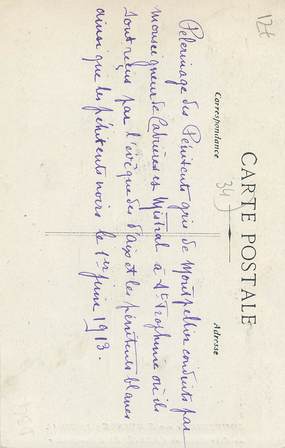 CARTE POSTALE
Correspondance
Adresse
Pélerinage des Pénitents gris de Montpellier conduits par
Monseigneur de Cabrières et Mistral à St Trophime où ils
sont reçus par l'évêque d'Aix et les pénitents blancs
ainsi que les pénitents noirs le 1er juin 1913.
34